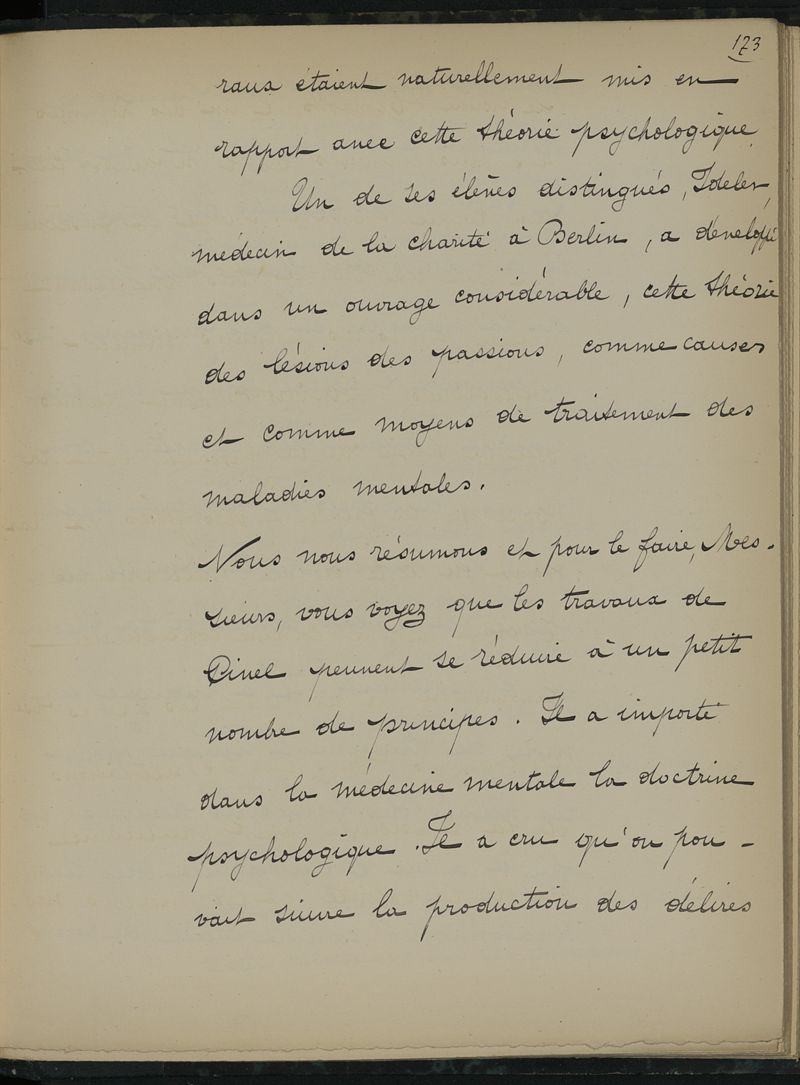 173
raux étaient naturellement mis en
rapport avec cette théorie psychologique.
Un de ses élèves distingués, Ideler,
médecin de la charité à Berlin, a développé
dans un ouvrage considérable, cette théorie
des lésions des passions, comme causes
et comme moyens de traitement des
maladies mentales.
Nous nous résumons et pour le faire, Mes-
sieurs, vous voyez que les travaux de
Pinel peuvent se réduire à un petit
nombre de principes. Il a importé
dans la médecine mentale la doctrine
psychologique. Il a cru qu'on pou-
vait suivre la production des délires